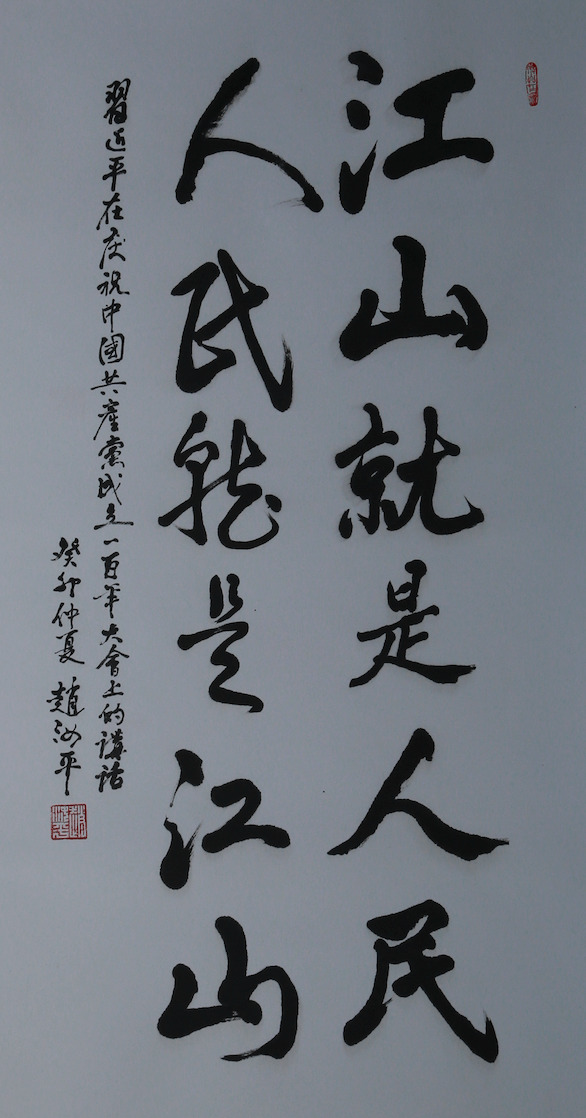 江山就是人民
人民就是江山
習近平在庆祝中國共産黨成立一百年大會上的講話
癸卯仲夏 趙汝平